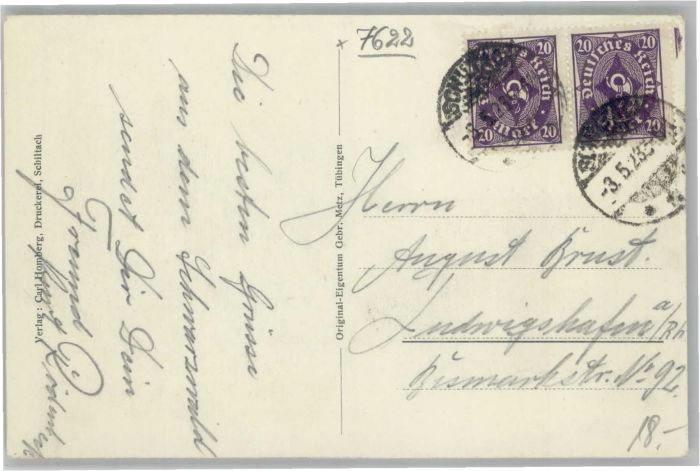 x 7622
20 20
Deutsches Reich
20 Mark 20
20 20
Deutsches Reich
20 Mark 20
-3.5.23
Die besten Grüsse
aus dem Schwarzwald
sendet Dir Dein
Freund
Verlag: Carl Homberg, Druckerei, Schiltach
Original-Eigentum Gebr. Metz, Tübingen
Herrn
August Brust.
Ludwigshafen a/Rh
Bismarkstr. No 92
18.-